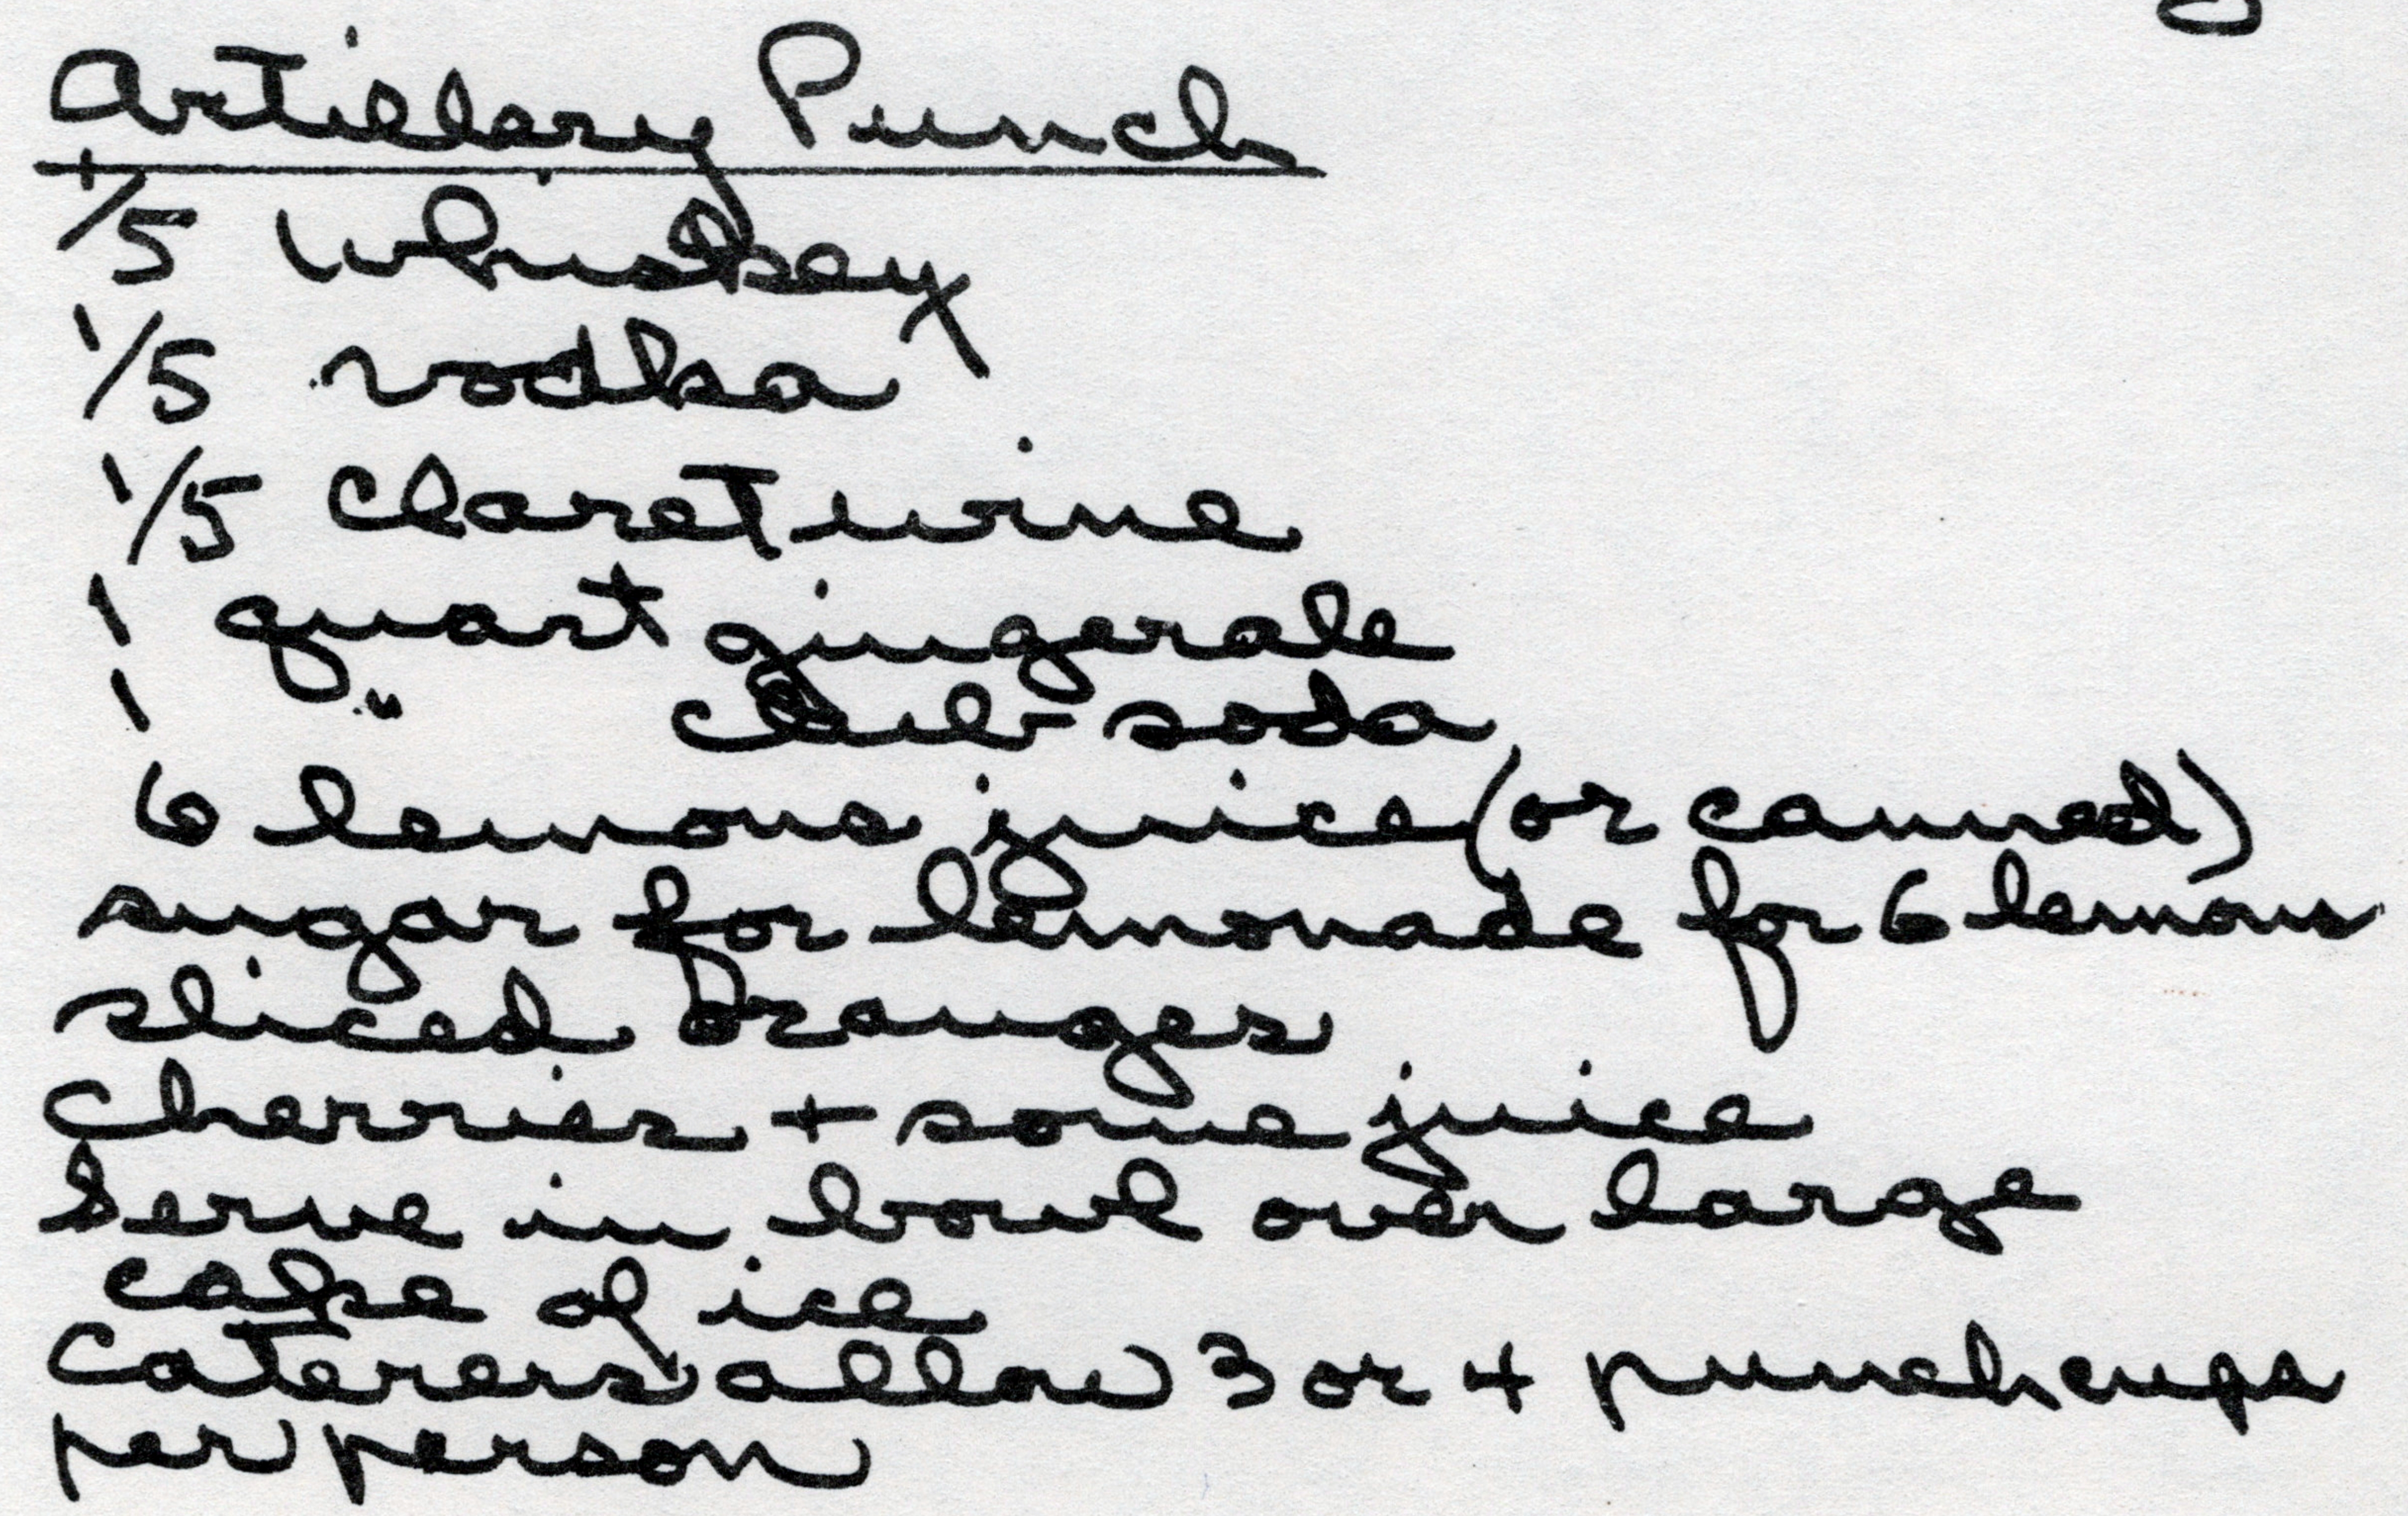 Artillery Punch
1/5 Whiskey
1/5 vodka
1/5 Claret wine
1 quart gingerale
1 " club soda
6 lemons juice (or canned)
sugar for lemonade for 6 lemons
sliced oranges
Cherries + some juice
Serve in bowl over large
cake of ice
Caterers allow 3 or 4 punch cups
per person